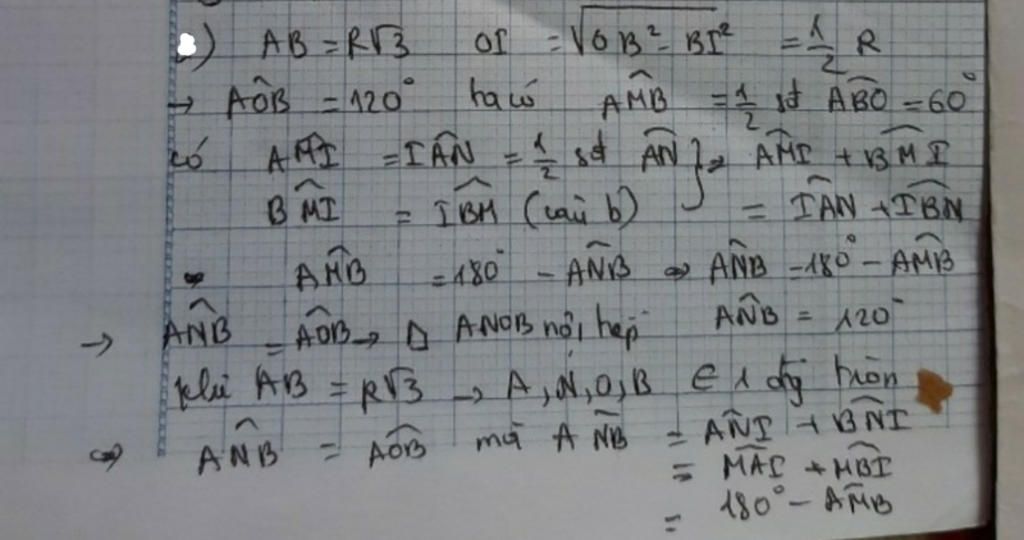 ) AB = R√3 OI = √OB² - BI² = 1/2 R
→ AÔB = 120° ta có AM̂B = 1/2 sđ ABO = 60°
có AM̂I = IÂN = 1/2 sđ AN } ⇒ AM̂I + BM̂I
BM̂I = IB̂M (câu b) = IÂN + IB̂N
⇒ AM̂B = 180° - AN̂B ⇒ AN̂B = 180° - AM̂B
→ AN̂B = AÔB → ANOB nội tiếp AN̂B = 120°
khi AB = R√3 → A, N, O, B ∈ 1 đg tròn
⇒ AN̂B = AÔB mà AN̂B = AN̂I + BN̂I
= MÂI + MB̂I
= 180° - AM̂B